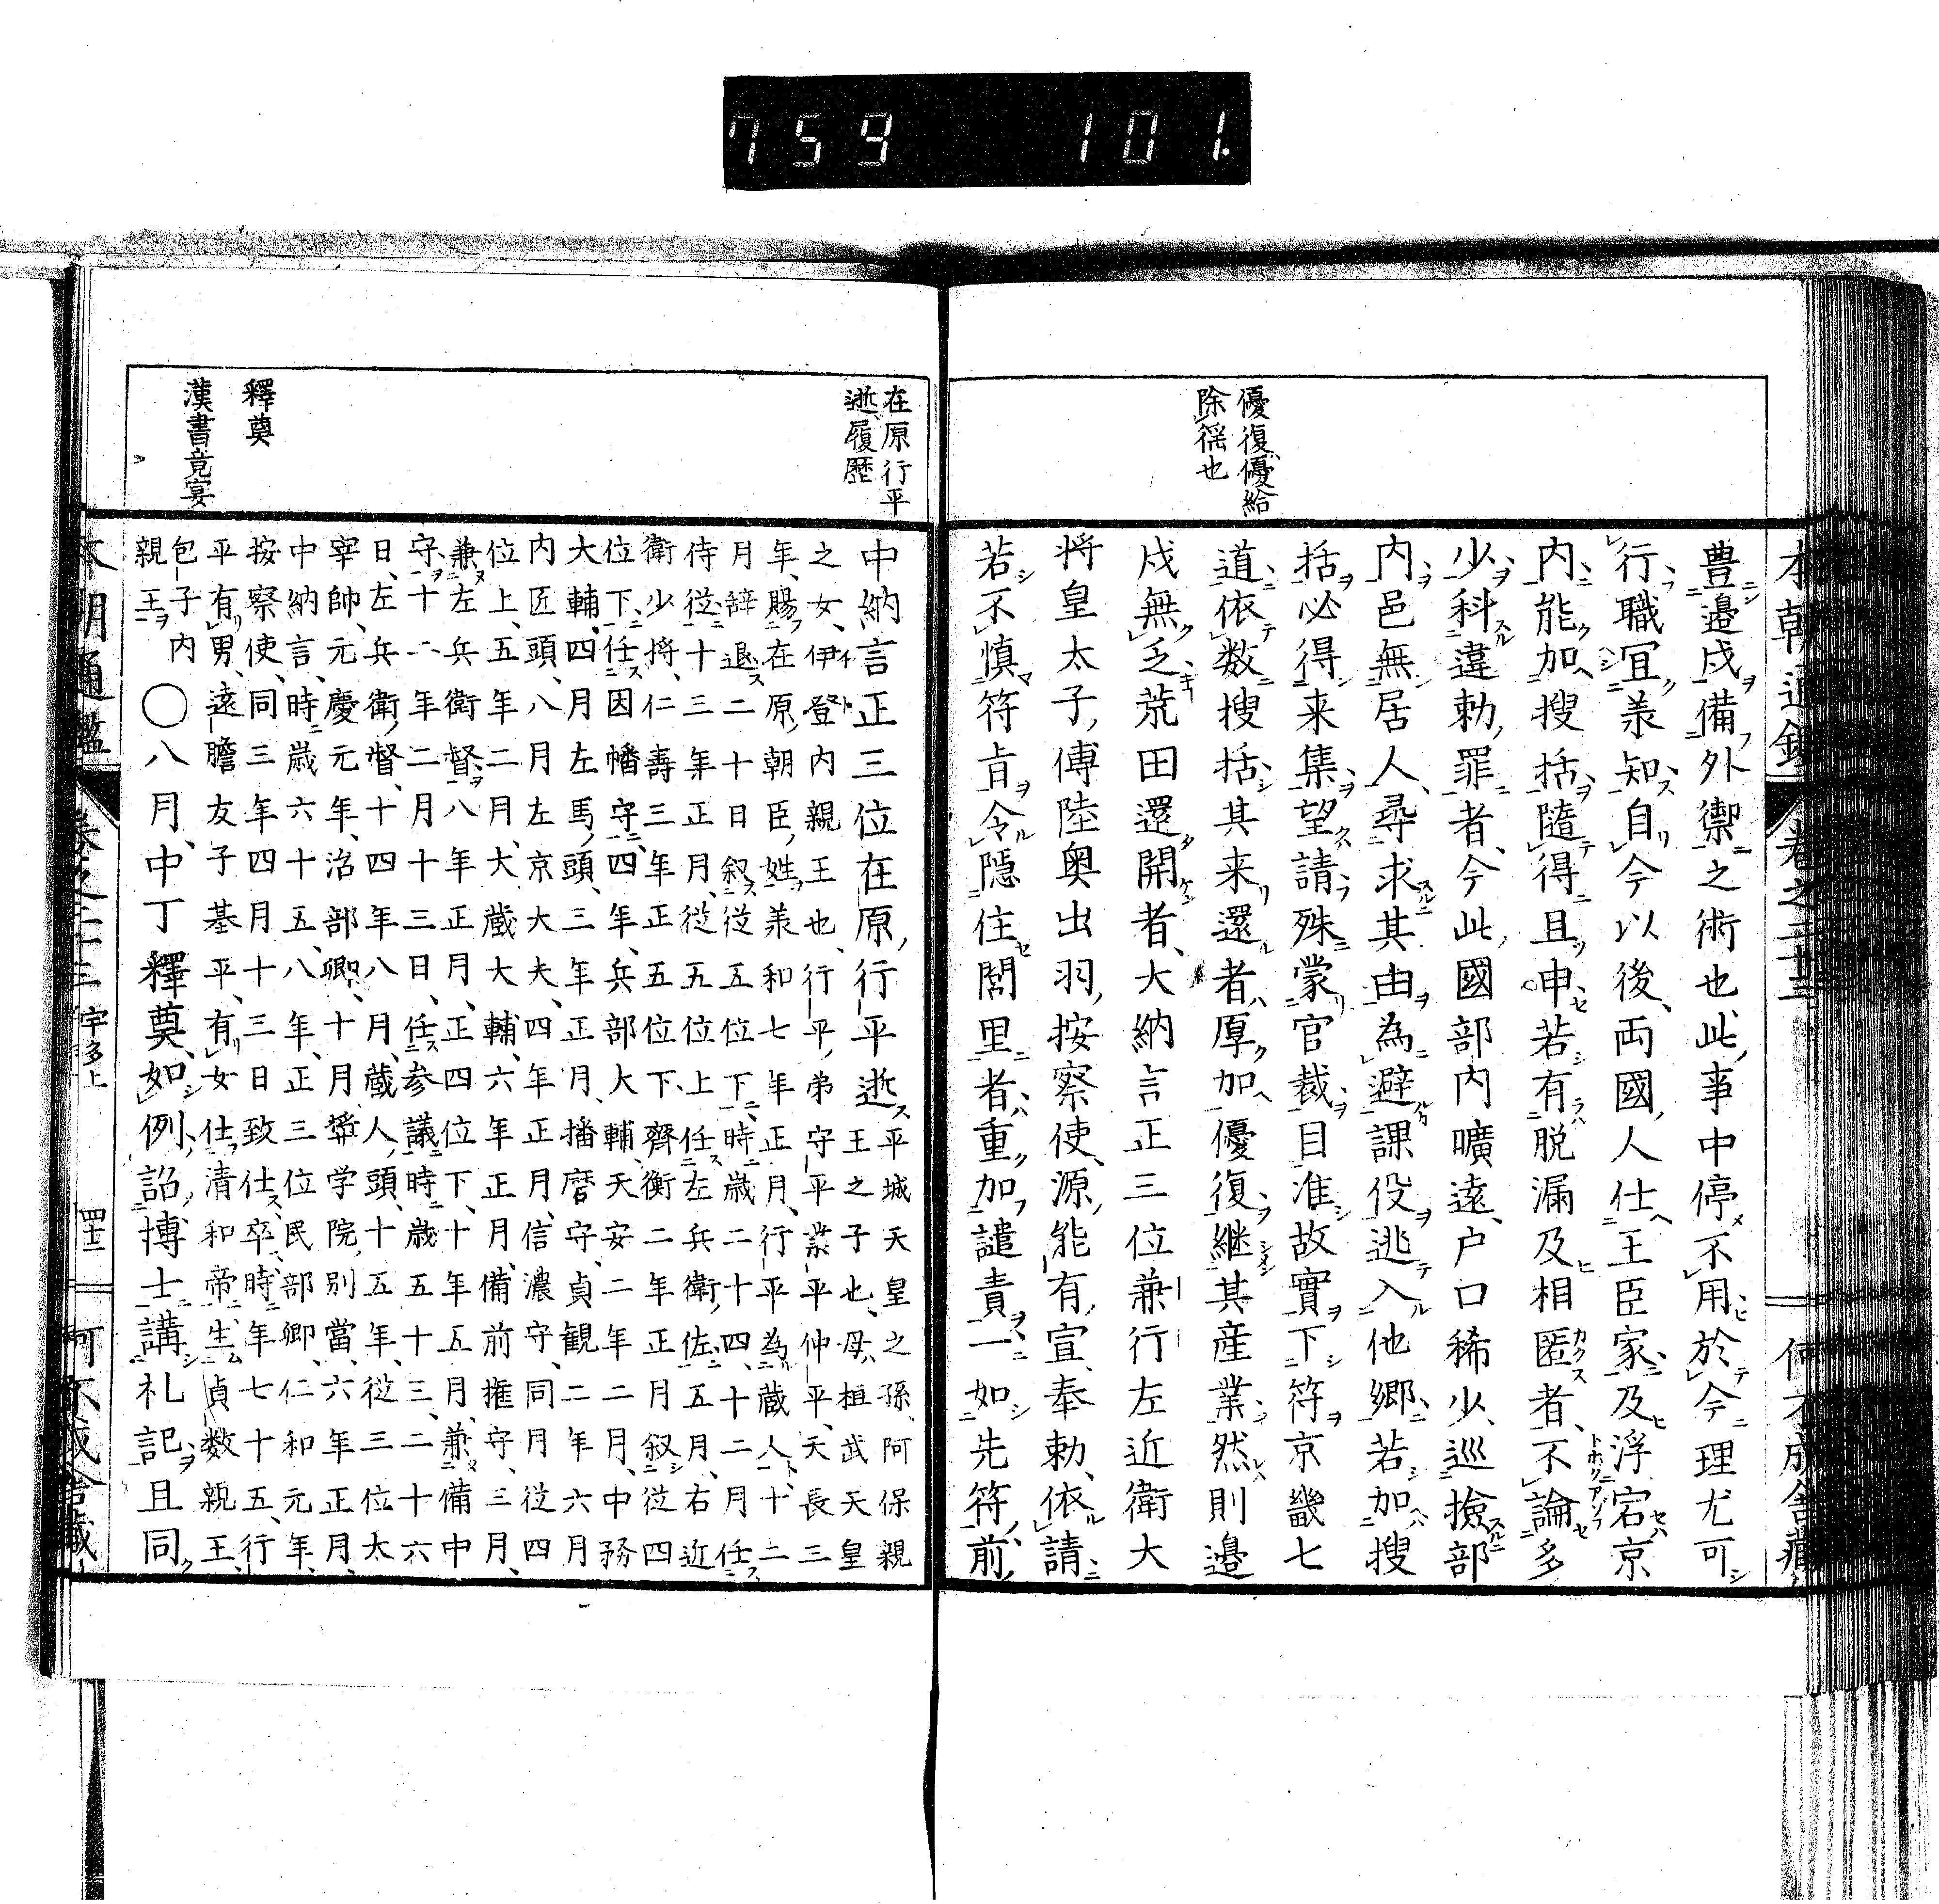 759 101.
本朝通鑑 卷之二十三 何不成舎蔵
優復優給
除徭也
豊邉戍備外禦之術也此事中停不用於今理尤可
行職冝羕知自今以後両國人仕王臣家及浮宕京
内能加搜括隨得且申若有脱漏及相匿者不論多
少科違勅罪者今此國部内曠遠户口稀少巡撿部
内邑無居人尋求其由為避課役逃入他郷若加搜
括必得来集望請殊蒙官裁目准故實下符京畿七
道依数搜括其来還者厚加優復継其産業然則邉
戍無乏荒田還開者大納言正三位兼行左近衛大
将皇太子傅陸奥出羽按察使源能有宣奉勅依請
若不慎符旨令隠住閭里者重加譴責一如先符前
在原行平
逝履歴
釋奠
漢書竟宴
中納言正三位在原行平逝
平城天皇之孫阿保親
王之子也母桓武天皇
之女伊登内親王也行平弟守平業平仲平天長三
年賜在原朝臣姓羕和七年正月行平為蔵人十二
月辞退二十日叙従五位下時歳二十四十二月任
侍従十三年正月従五位上任左兵衛佐五月右近
衛少将仁壽三年正五位下齊衡二年正月叙従四
位下任因幡守四年兵部大輔天安二年二月中務
大輔四月左馬頭三年正月播磨守貞観二年六月
内匠頭八月左京大夫四年正月信濃守同月従四
位上五年二月大蔵大輔六年正月備前權守三月
兼左兵衛督八年正月正四位下十年五月兼備中
守十二年二月十三日任参議時歳五十三二十六
日左兵衛督十四年八月蔵人頭十五年従三位太
宰帥元慶元年治部卿十月奨学院別當六年正月
中納言時歳六十五八年正三位民部卿仁和元年
按察使同三年四月十三日致仕卒時年七十五行
平有男遠瞻友子基平有女仕清和帝生貞数親王
包子内
親王
○八月中丁釋奠如例詔博士講札記且同
本朝通鑑 卷之二十三 宇多上 四十二 何不成舎蔵